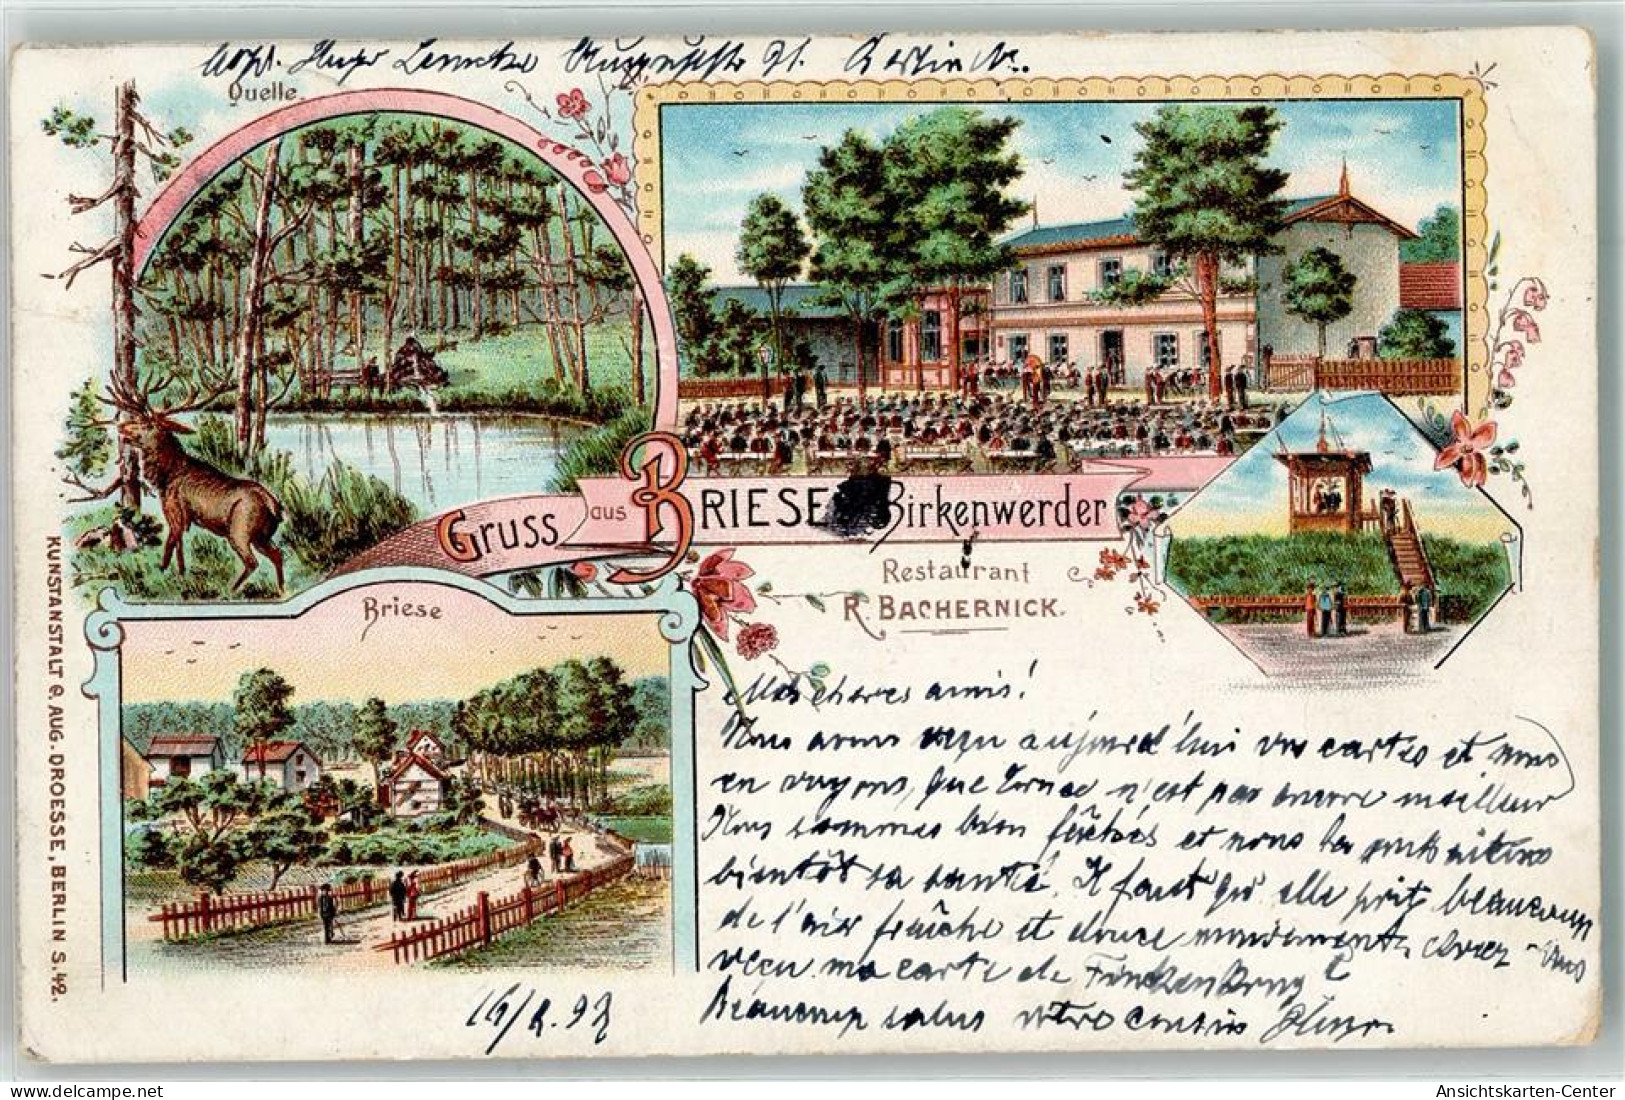 Absd. Hugo Lemcke Auguststr 91. Berlin N.
Quelle.
Gruss aus BRIESE Birkenwerder
Restaurant
R. BACHERNICK.
Briese
KUNSTANSTALT G. AUG. DROESSE, BERLIN S. 42.
Mes cheres amis!
Nous avons reçu aujourd'hui vos cartes et nous
en voyons, que n'est pas encore meilleur
Nous sommes bien fâchés et nous
bientôt sa santé. Il faut qu' elle beaucoup
de l'air fraîche et douce avez-vous
reçu ma carte de Finkenkrug?
Beaucoup salus votre cousin Hugo.
16/8.97
Ansichtskarten-Center